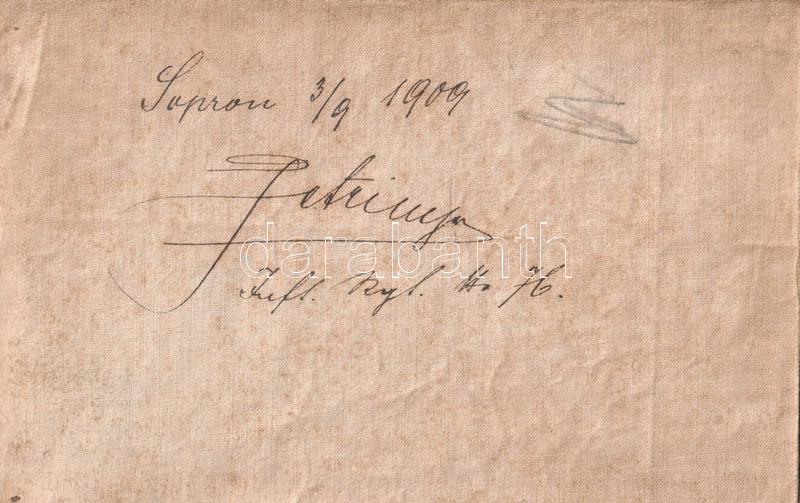 Sopron 3/9 1909
darabanth
Inft. Rgt. No 76.